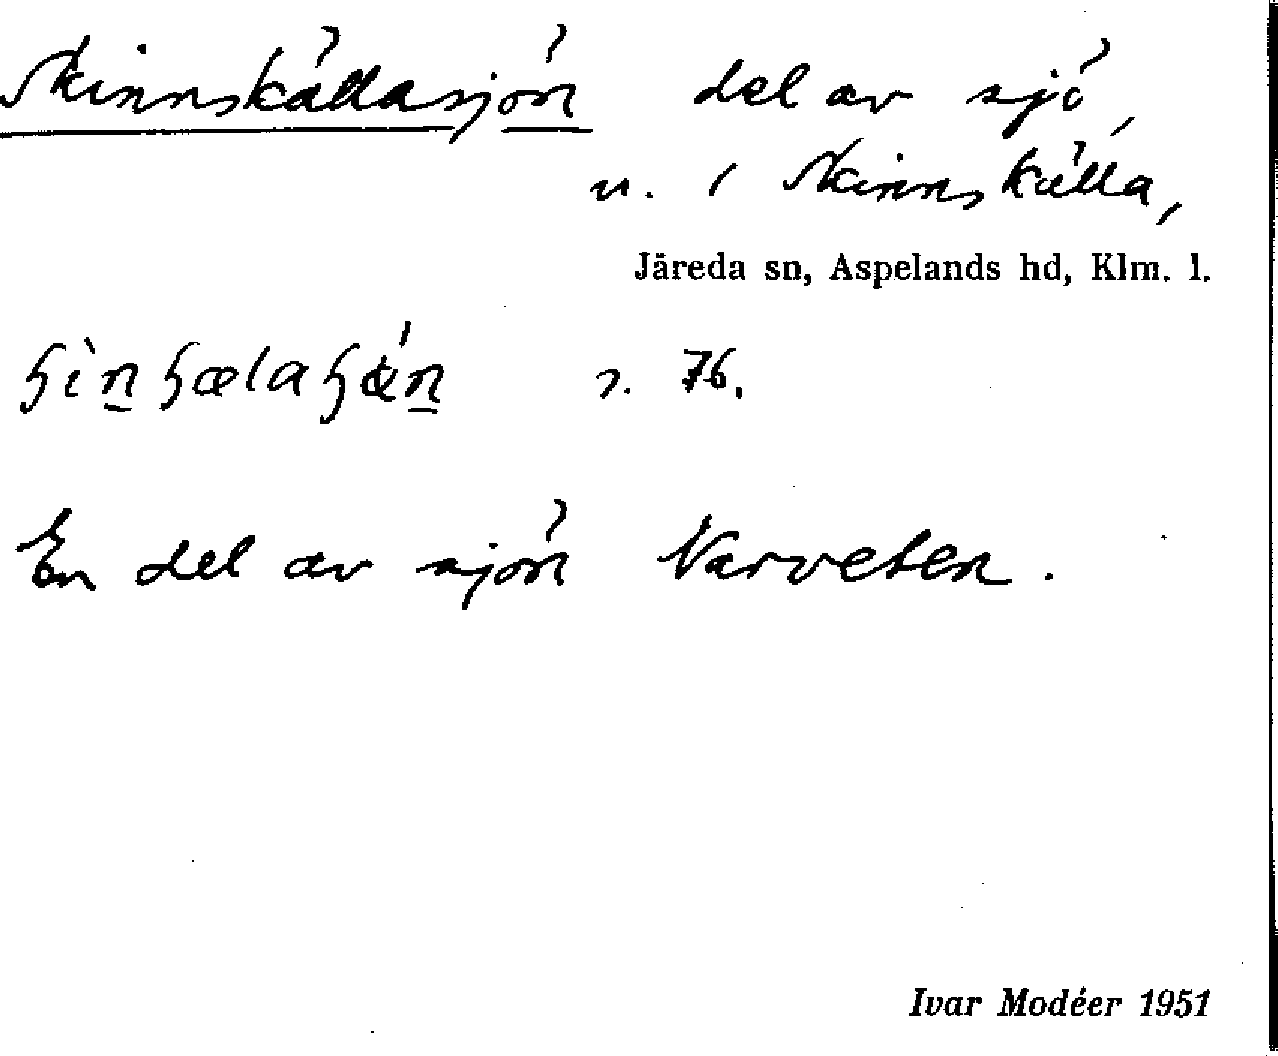 Skinnskällasjön del av sjö,
u. / Skinnskälla,
Järeda sn, Aspelands hd, Klm. l.
s. 76.
En del av sjön Narveten.
Ivar Modéer 1951